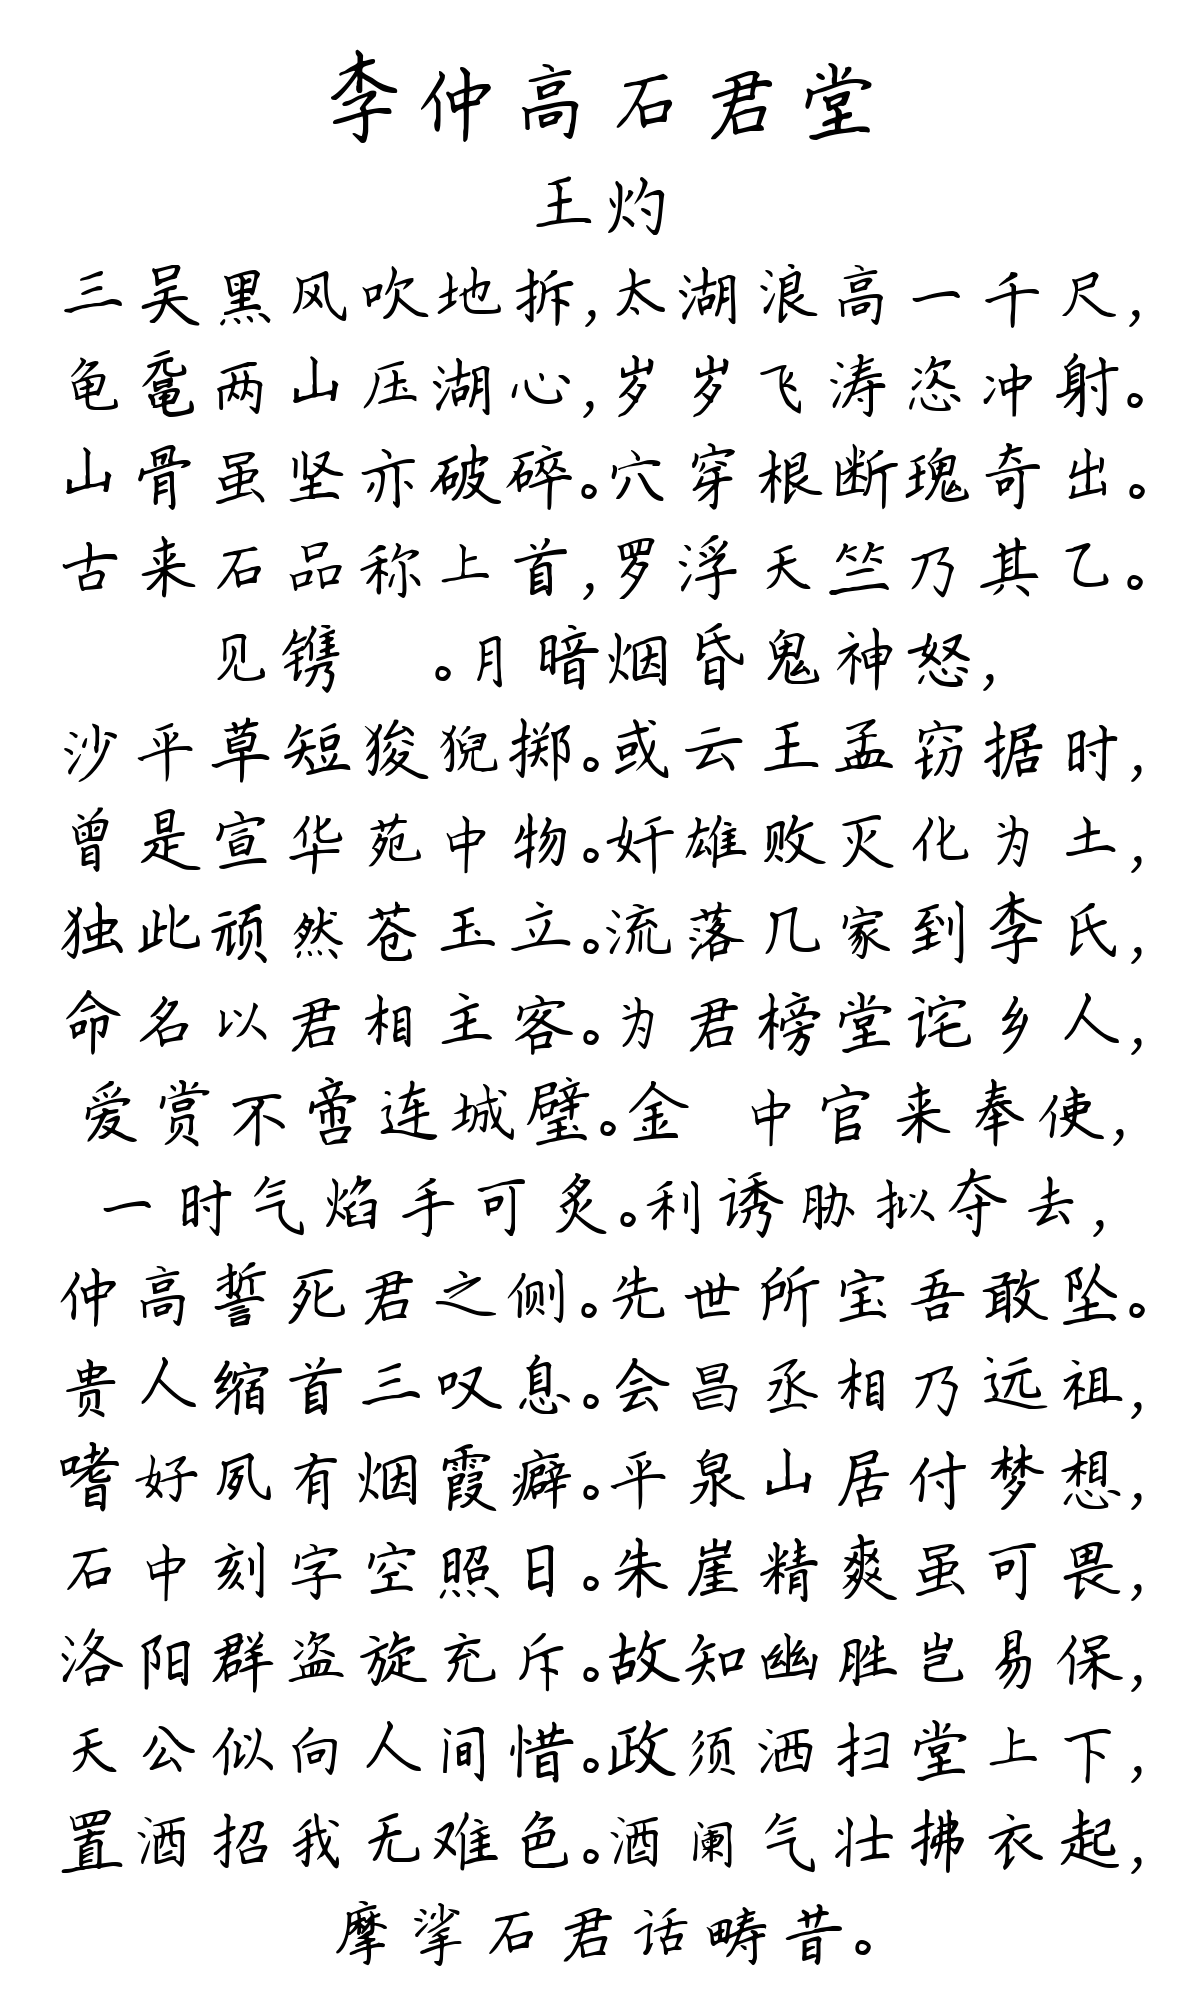 李仲高石君堂
王灼
三吴黑风吹地拆,太湖浪高一千尺,
龟鼋两山压湖心,岁岁飞涛恣冲射。
山骨虽坚亦破碎。穴穿根断瑰奇出。
古来石品称上首,罗浮天竺乃其乙。
见镌 。月暗烟昏鬼神怒,
沙平草短狻猊掷。或云王孟窃据时,
曾是宣华苑中物。奸雄败灭化为土,
独此顽然苍玉立。流落几家到李氏,
命名以君相主客。为君榜堂诧乡人,
爱赏不啻连城璧。金 中官来奉使,
一时气焰手可炙。利诱胁拟夺去,
仲高誓死君之侧。先世所宝吾敢坠。
贵人缩首三叹息。会昌丞相乃远祖,
嗜好夙有烟霞癖。平泉山居付梦想,
石中刻字空照日。朱崖精爽虽可畏,
洛阳群盗旋充斥。故知幽胜岂易保,
天公似向人间惜。政须洒扫堂上下,
置酒招我无难色。酒阑气壮拂衣起,
摩挲石君话畴昔。